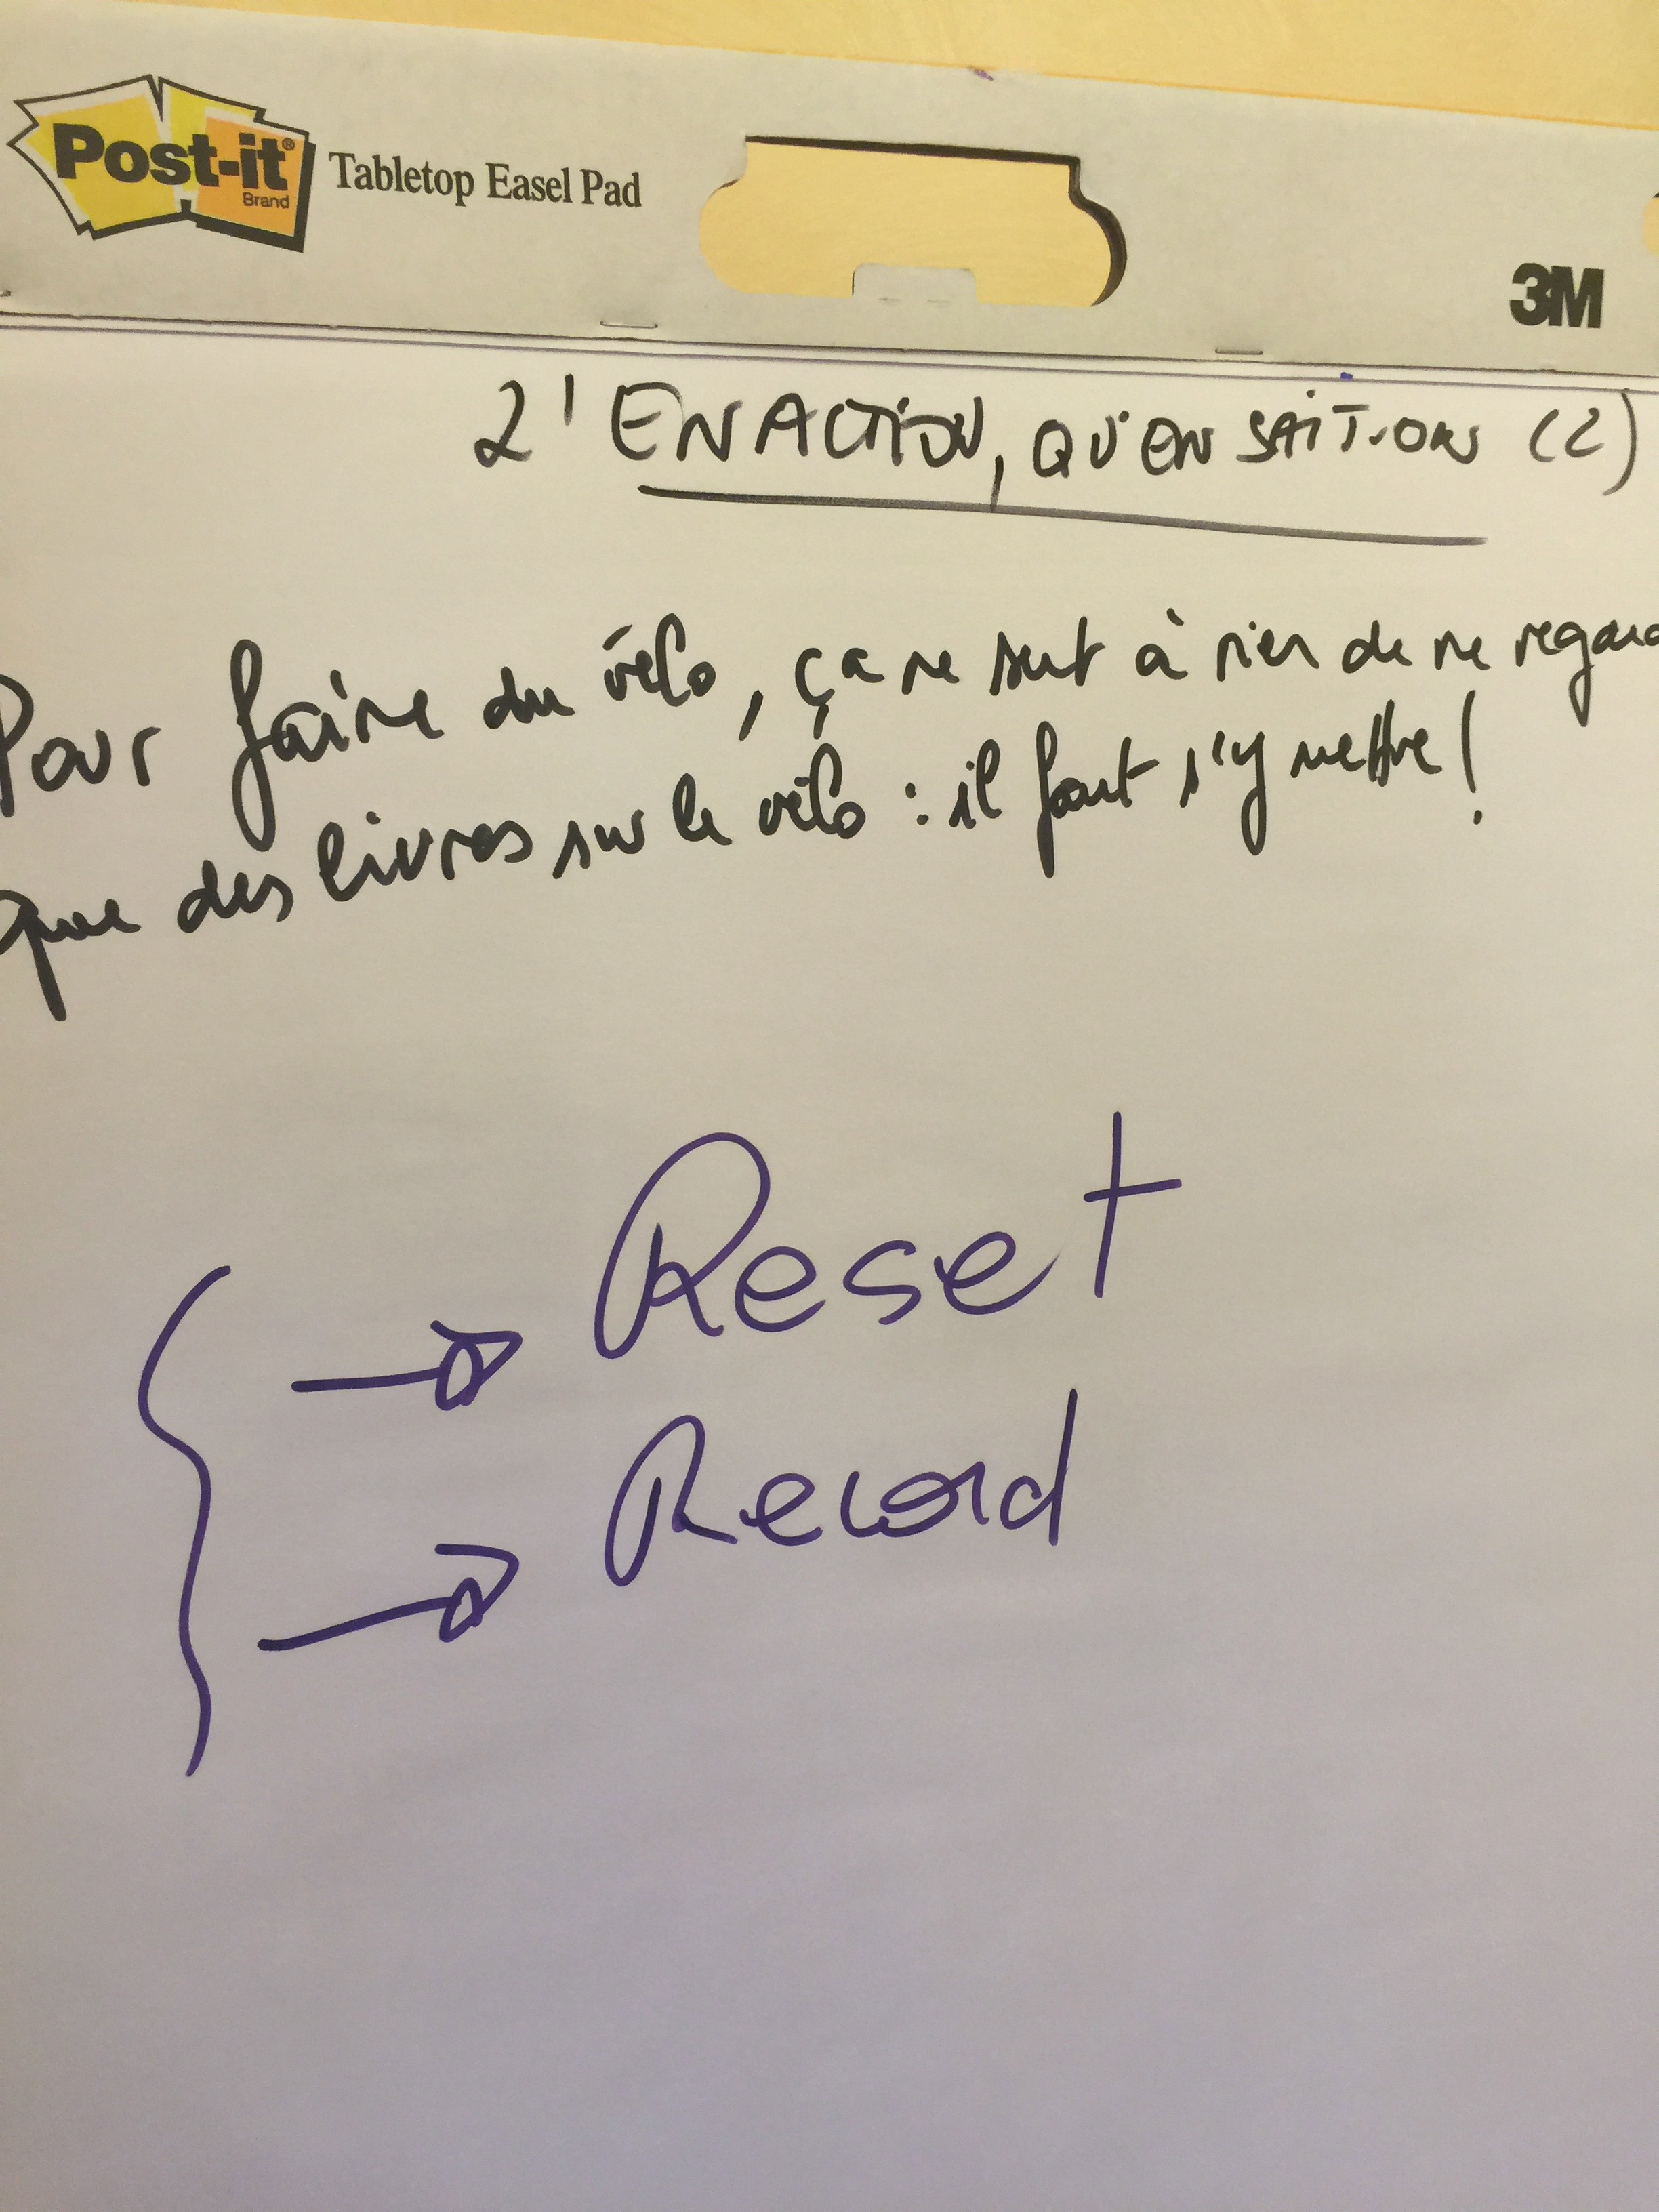 Post-it® Brand
Tabletop Easel Pad
3M
L'ENACTION, QU'EN SAIT-ON (2)
Pour faire du vélo, ça ne sert à rien de ne regard
que des livres sur le vélo : il faut s'y mettre !
→ Reset
→ Record